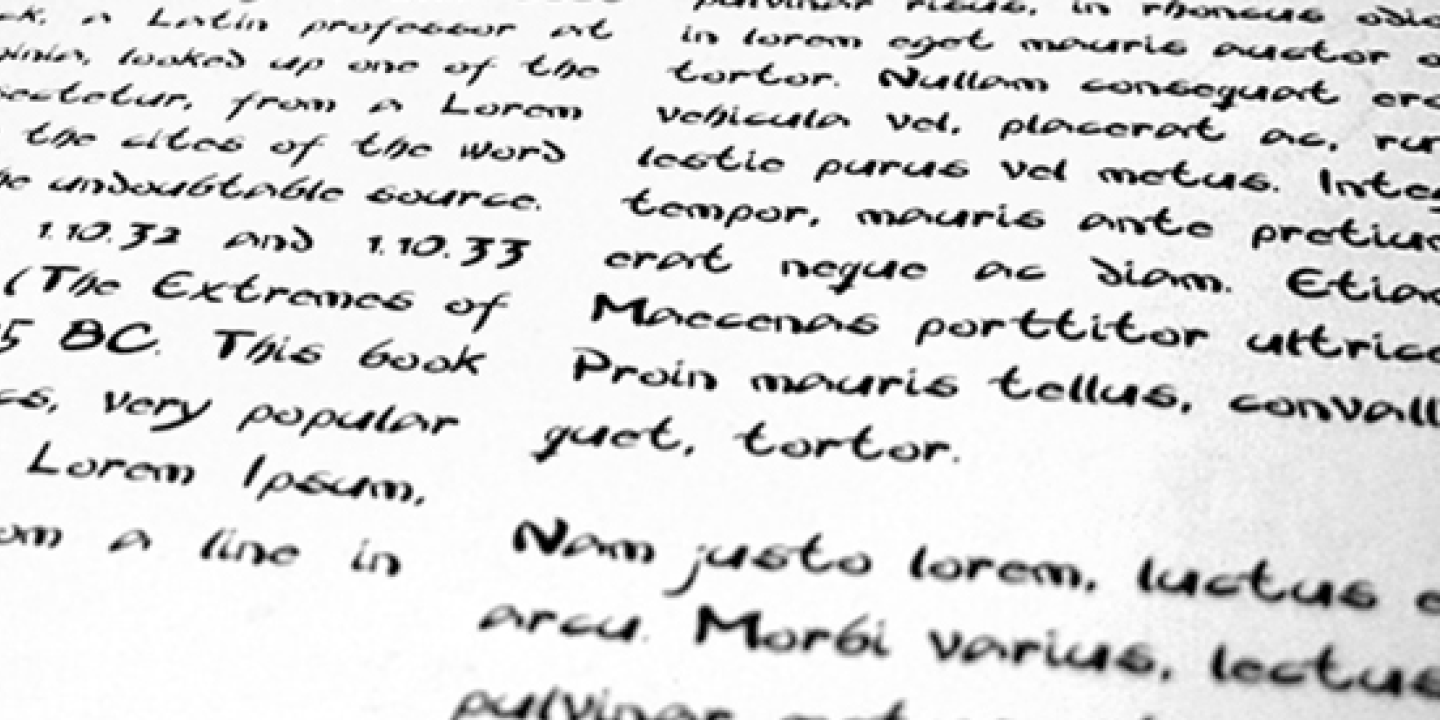 a Latin professor at
looked up one of the
from a Lorem
the cites of the word
undoubtable source.
1.10.32 and 1.10.33
(The Extremes of
BC. This book
very popular
Lorem Ipsum,
a line in
risus, in rhoncus odio
in lorem eget mauris auctor
tortor. Nullam consequat
vehicula vel, placerat ac,
lestie purus vel metus.
tempor, mauris ante
erat neque ac diam.
Maecenas porttitor
Proin mauris tellus,
quet, tortor.
Nam justo lorem, luctus
arcu. Morbi varius, lectus
pulvinar